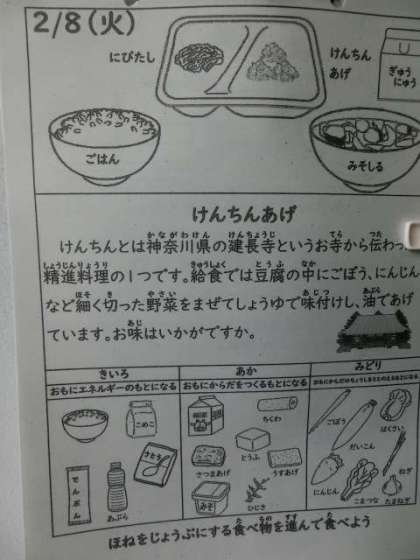 2/8(火)
にびたし
けんちん
あげ
ぎゅう
にゅう
ごはん
みそしる
けんちんあげ
かながわけん けんちょうじ てら つた
けんちんとは神奈川県の建長寺というお寺から伝わっ
しょうじんりょうり きゅうしょく とうふ なか
精進料理の1つです。給食では豆腐の中にごぼう、にんじん
ほそ き やさい あじつ あぶら
など細く切った野菜をまぜてしょうゆで味付けし、油であげ
あじ
ています。お味はいかがですか。
きいろ
あか
みどり
おもにエネルギーのもとになる
おもにからだをつくるもとになる
おもにからだのちょうしをととのえるもとになる
こめこ
さとう
でんぷん
あぶら
ちくわ
とうふ
さつまあげ
うすあげ
みそ
ひじき
ごぼう
はくさい
だいこん
ねぎ
にんじん
こまつな
たまねぎ
た もの すす た
ほねをじょうぶにする食べ物を進んで食べよう